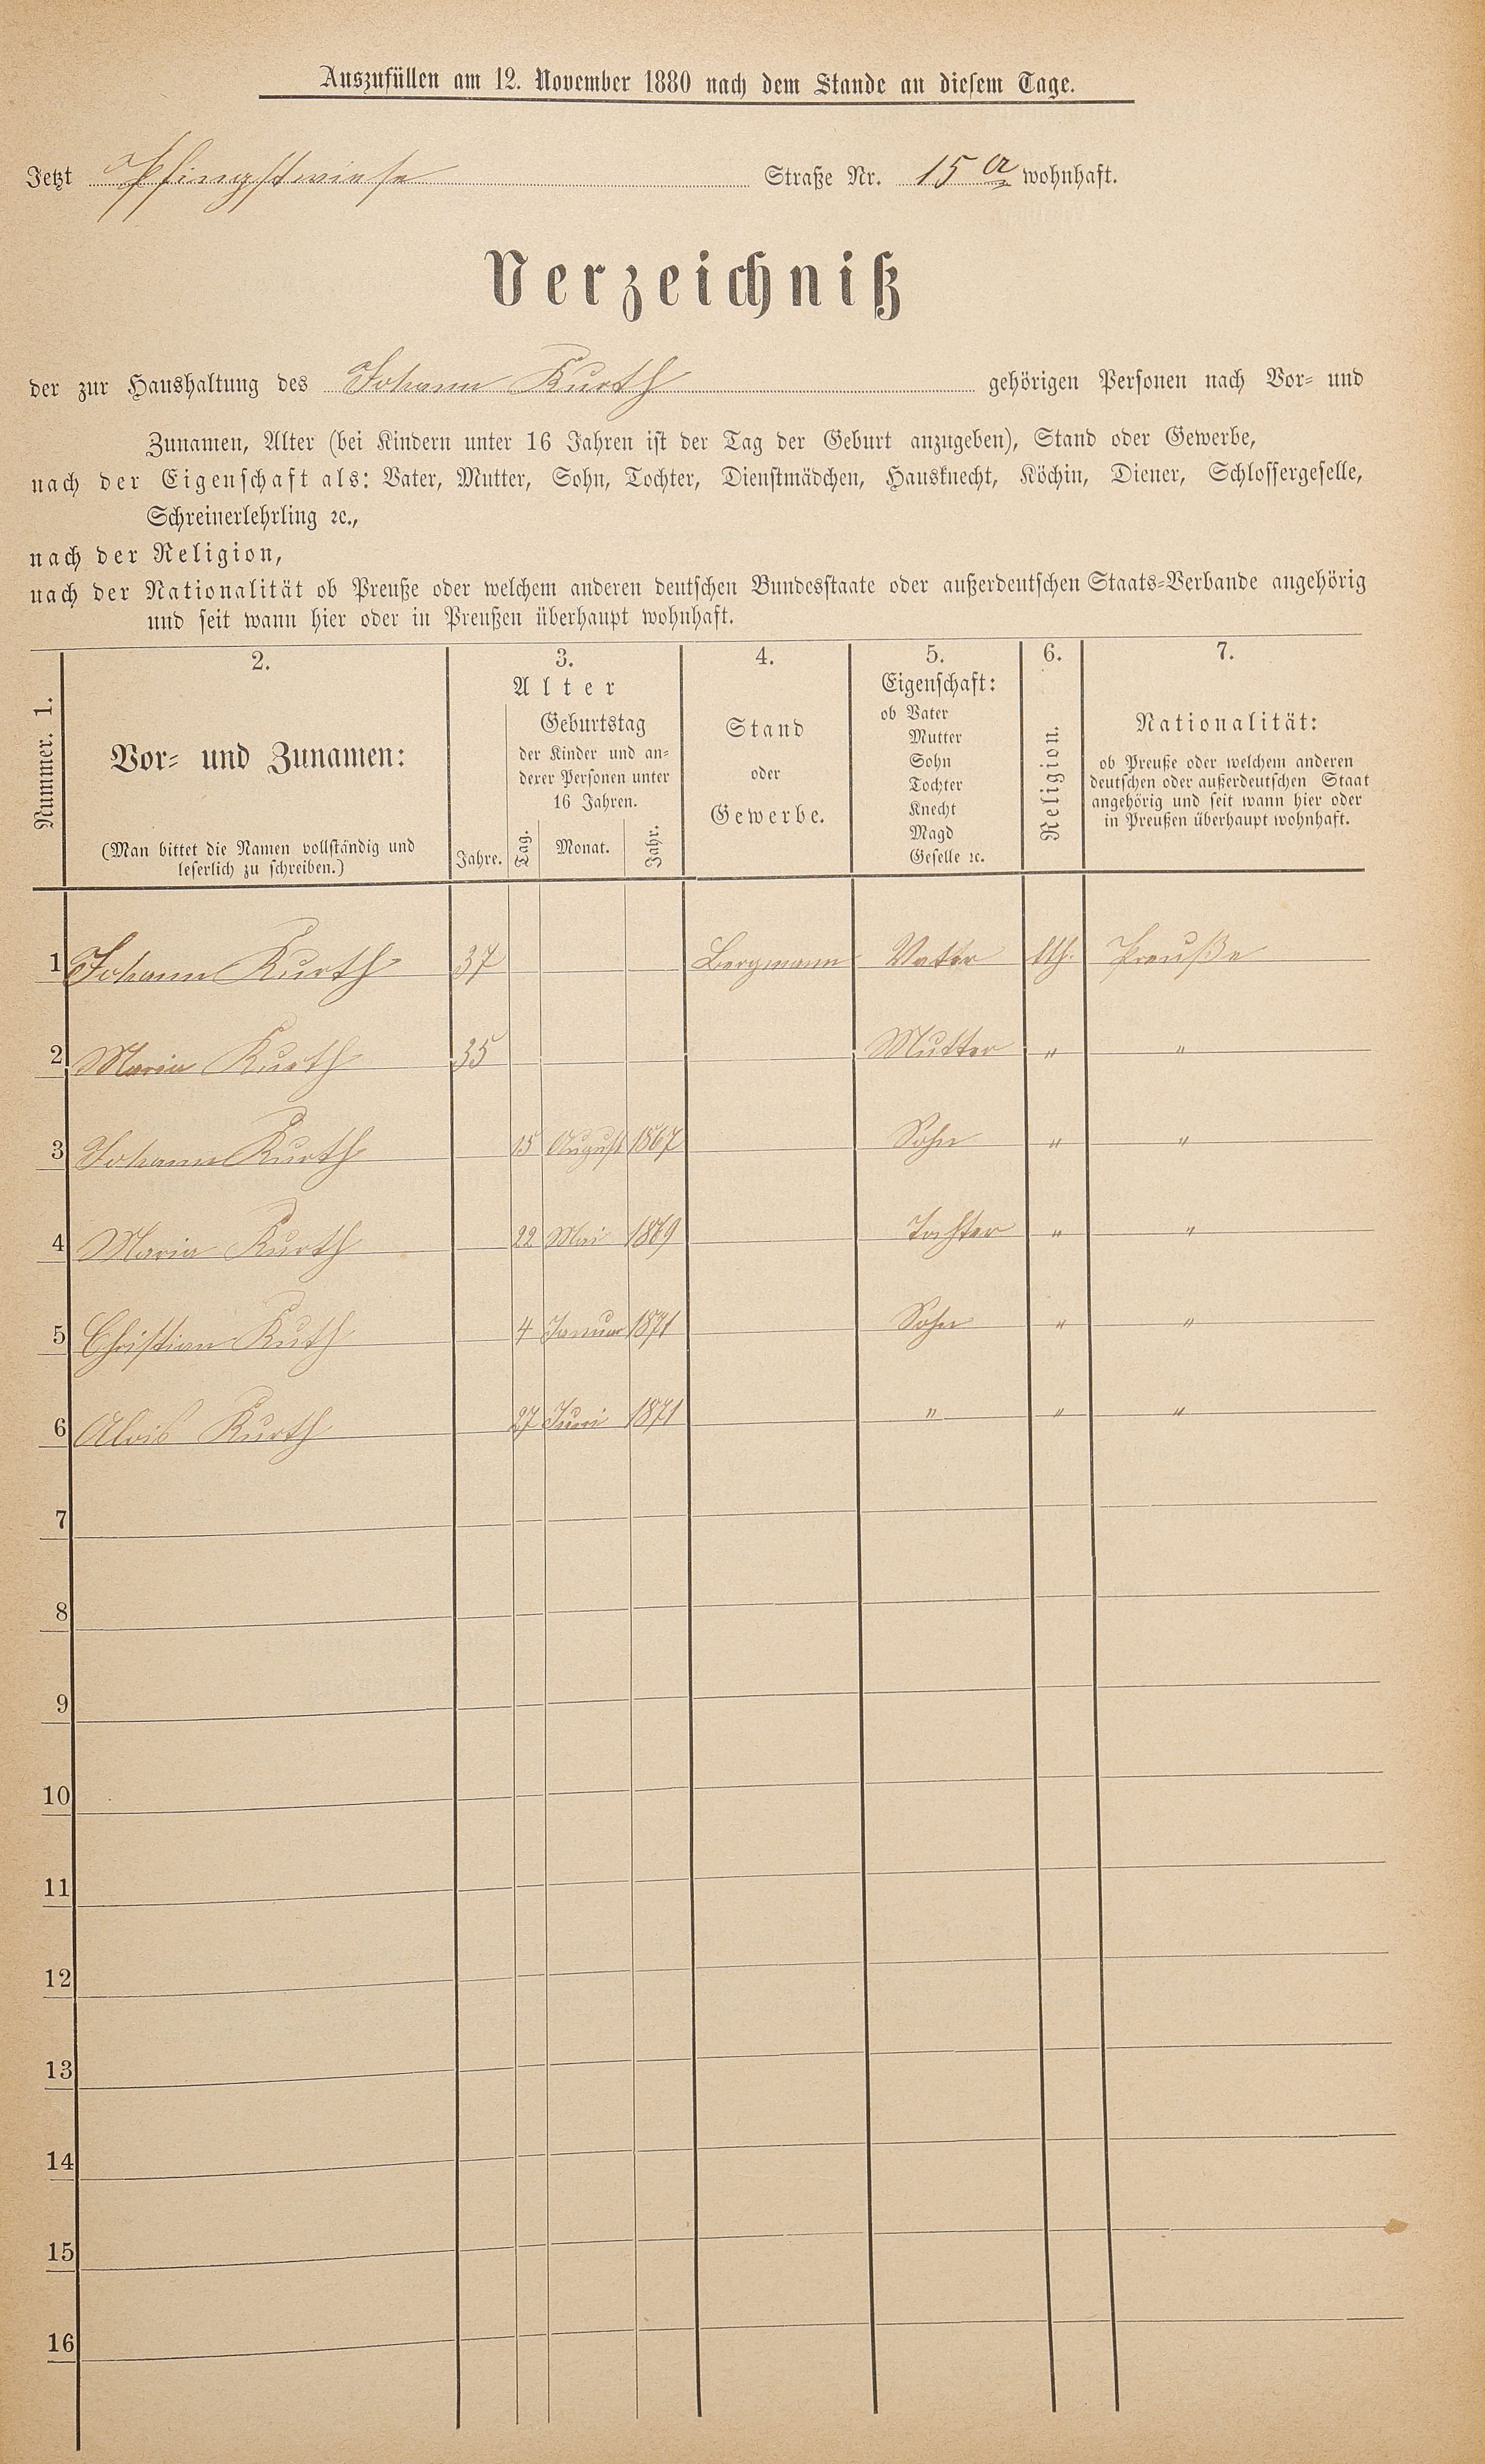 Auszufüllen am 12. November 1880 nach dem Stande an diesem Tage.
Jetzt Pfingstwiese Straße Nr. 15 a wohnhaft.
Verzeichniß
der zur Haushaltung des Johann Kurth gehörigen Personen nach Vor- und
Zunamen, Alter (bei Kindern unter 16 Jahren ist der Tag der Geburt anzugeben), Stand oder Gewerbe,
nach der Eigenschaft als: Vater, Mutter, Sohn, Tochter, Dienstmädchen, Hausknecht, Köchin, Diener, Schlossergeselle,
Schreinerlehrling ꝛc.,
nach der Religion,
nach der Nationalität ob Preuße oder welchem anderen deutschen Bundesstaate oder außerdeutschen Staats-Verbande angehörig
und seit wann hier oder in Preußen überhaupt wohnhaft.
Nummer. 1.
2.
Vor- und Zunamen:
(Man bittet die Namen vollständig und
leserlich zu schreiben.)
3.
Alter
Jahre.
Geburtstag
der Kinder und an-
derer Personen unter
16 Jahren.
Tag. Monat. Jahr.
4.
Stand
oder
Gewerbe.
5.
Eigenschaft:
ob Vater
Mutter
Sohn
Tochter
Knecht
Magd
Geselle ꝛc.
6.
Religion.
7.
Nationalität:
ob Preuße oder welchem anderen
deutschen oder außerdeutschen Staat
angehörig und seit wann hier oder
in Preußen überhaupt wohnhaft.
1 Johann Kurth 37 Bergmann Vater kth. Preuße
2 Maria Kurth 35 Mutter " "
3 Johann Kurth 15 August 1867 Sohn " "
4 Maria Kurth 22 Mai 1869 Tochter " "
5 Christian Kuth 4 Januar 1871 Sohn " "
6 Alois Kurth 27 Juni 1871 " " "
7
8
9
10
11
12
13
14
15
16